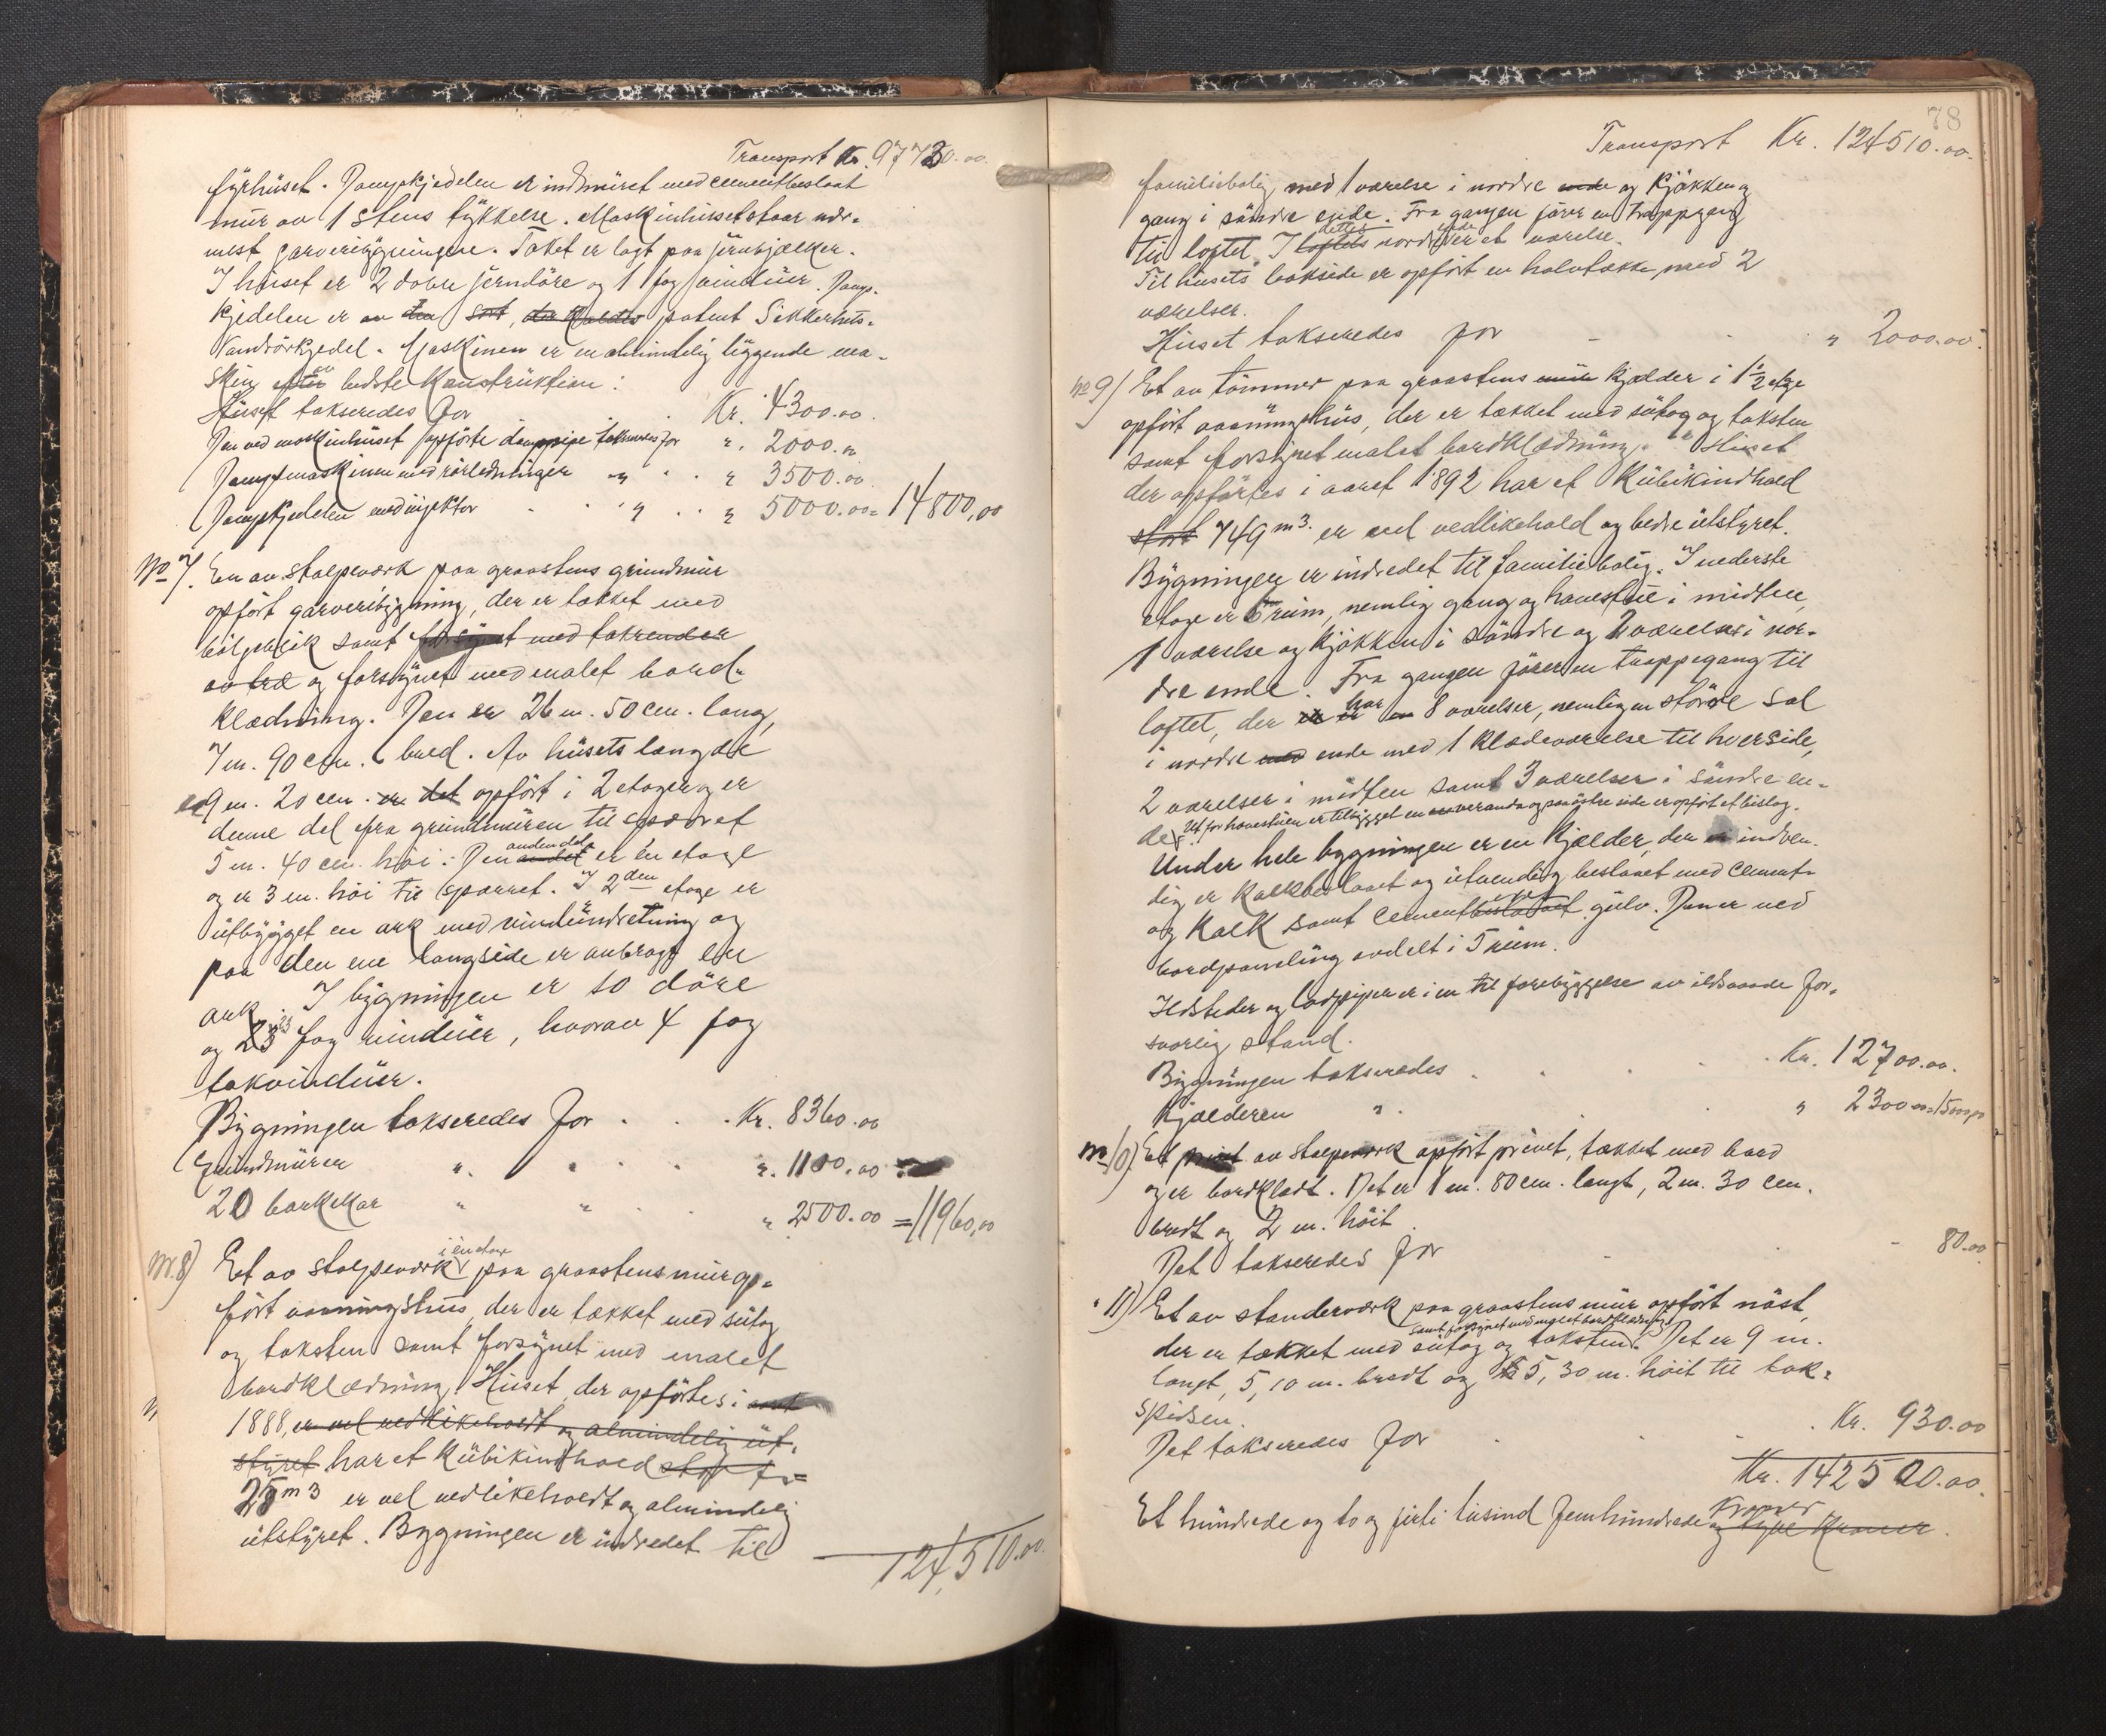 Transport Kr. 97730.00
fyrhuset. Dampkjedelen er indmuret med cementbeslaat
mur av 1 Stens tykkelse. Maskinhuset staar nær-
mest garveribygningene. Taket er lagt paa jernbjælker.
I huset er 2 doble jerndöre og 1 fag vinduer. Damp-
kjedelen er av den sort, der kaldes patent Sikkerhets-
Vandrörkjedel. Maskinen er en almindelig liggende ma-
skin efter bedste Konstruktion:
Huset takseredes for Kr. 4300.00
Den ved maskinhuset opförte damppipe takseres for " 2000.00
Dampmaskinen med rörledninger " " 3500.00
Dampkjedelen med injektor " " 5000.00 = 14800,00
No 7. En av Stolpeværk paa graastens grundmur
opfört garveribygning, der er tækket med
bölgeblik samt forsynet med takrender
av træ og forsynet med malet bord-
klædning. Den er 26 m. 50 cm. lang,
7 m. 90 ctm. bred. Av husets længde
er 9 m. 20 cm. er det opfört i 2 etager og er
denne del fra grundmuren til sparret
5 m. 40 cm. höi. Den andet anden del er en etage
og er 3 m. höi til sparret. I 2den etage er
utbygget en ark med vinduindretning og
paa den ene langside er anbragt en
ark. I bygningen er 10 döre
og 23 fag vinduer, hvorav 4 fag
takvinduer.
Bygningen takseredes for Kr. 8360.00
Grundmuren " " 1100.00
20 barkekar " " 2500.00 = 11960,00
Nr. 8) Et av Stolpeværk i en etage paa graastensmur op-
fört vaaningshus, der er tækket med sutag
og taksten samt forsynet med malet
bordklædning. Huset, der opförtes i aaret
1888, er vel vedlikeholdt og almindelig ut-
styret har et Kubikindhold stor
25 m3 er vel vedlikeholdt og almindelig
utstyret. Bygningen er indredet til
124,510.00
78
Transport Kr. 124510.00
familiebolig med 1 værelse i nordre ende og Kjökken og
gang i söndre ende. Fra gangen förer en trappgang
til loftet. I loftets dettes nordre ende er et værelse.
Til husets bakside er opfört en halvtække med 2
værelser.
Huset takseredes for " 2000.00
No 9) Et av tömmer paa graastens mur kjælder i 1½ etage
opfört vaaningshus, der er tækket med sutag og taksten
samt forsynet malet bordklædning. Huset
der opförtes i aaret 1892 har et Kubikindhold
stort 749 m3. er vel vedlikehold og bedre utstyret.
Bygningen er indredet til familiebolig. I nederste
etage er 6 rum, nemlig gang og havestue i midten,
1 værelse og Kjökken i söndre og 2 værelser i nor-
dre ende. Fra gangen förer en trappegang til
loftet, der er har 8 værelser, nemlig en större sal
i nordre med ende med 1 klædeværelse til hver side,
2 værelser i midten samt 3 værelser i söndre en-
de. Ut for havestuen er tilbygget en veranda og paa östre side er opfört et bislag.
Under hele bygningen er en Kjælder, der er indven-
dig er Kalkbeslaaet og utvendig beslaaet med cement-
og Kalk samt cementbeslaaet gulv. Den er ved
bordpaneling avdelt i 5 rum.
Ildsteder og lodpiper er i en til forebyggelse av ildsvaade for-
svarlig stand.
Bygningen takseredes Kr. 12700.00.
Kjælderen " " 2300.00 = 15000,00
No 10) Et privet av Stolpeværk opfört privet, tækket med bord
og er bordklædt. Det er 1 m. 80 cm. langt, 2 m. 30 cm.
bredt og 2 m. höit.
Det takseredes for 80.00
" 11) Et av standerværk paa graastens mur opfört nöst,
der er tækket med sutag og taksten samt forsynet med malet bordklædning. Det er 9 m.
langt, 5,10 m. bredt og 5,30 m. höit til tak-
spidsen.
Det takseredes for Kr. 930.00
Kr. 142500.00.
Et hundrede og to og firti tusind femhundrede Kroner og tyve Kroner.